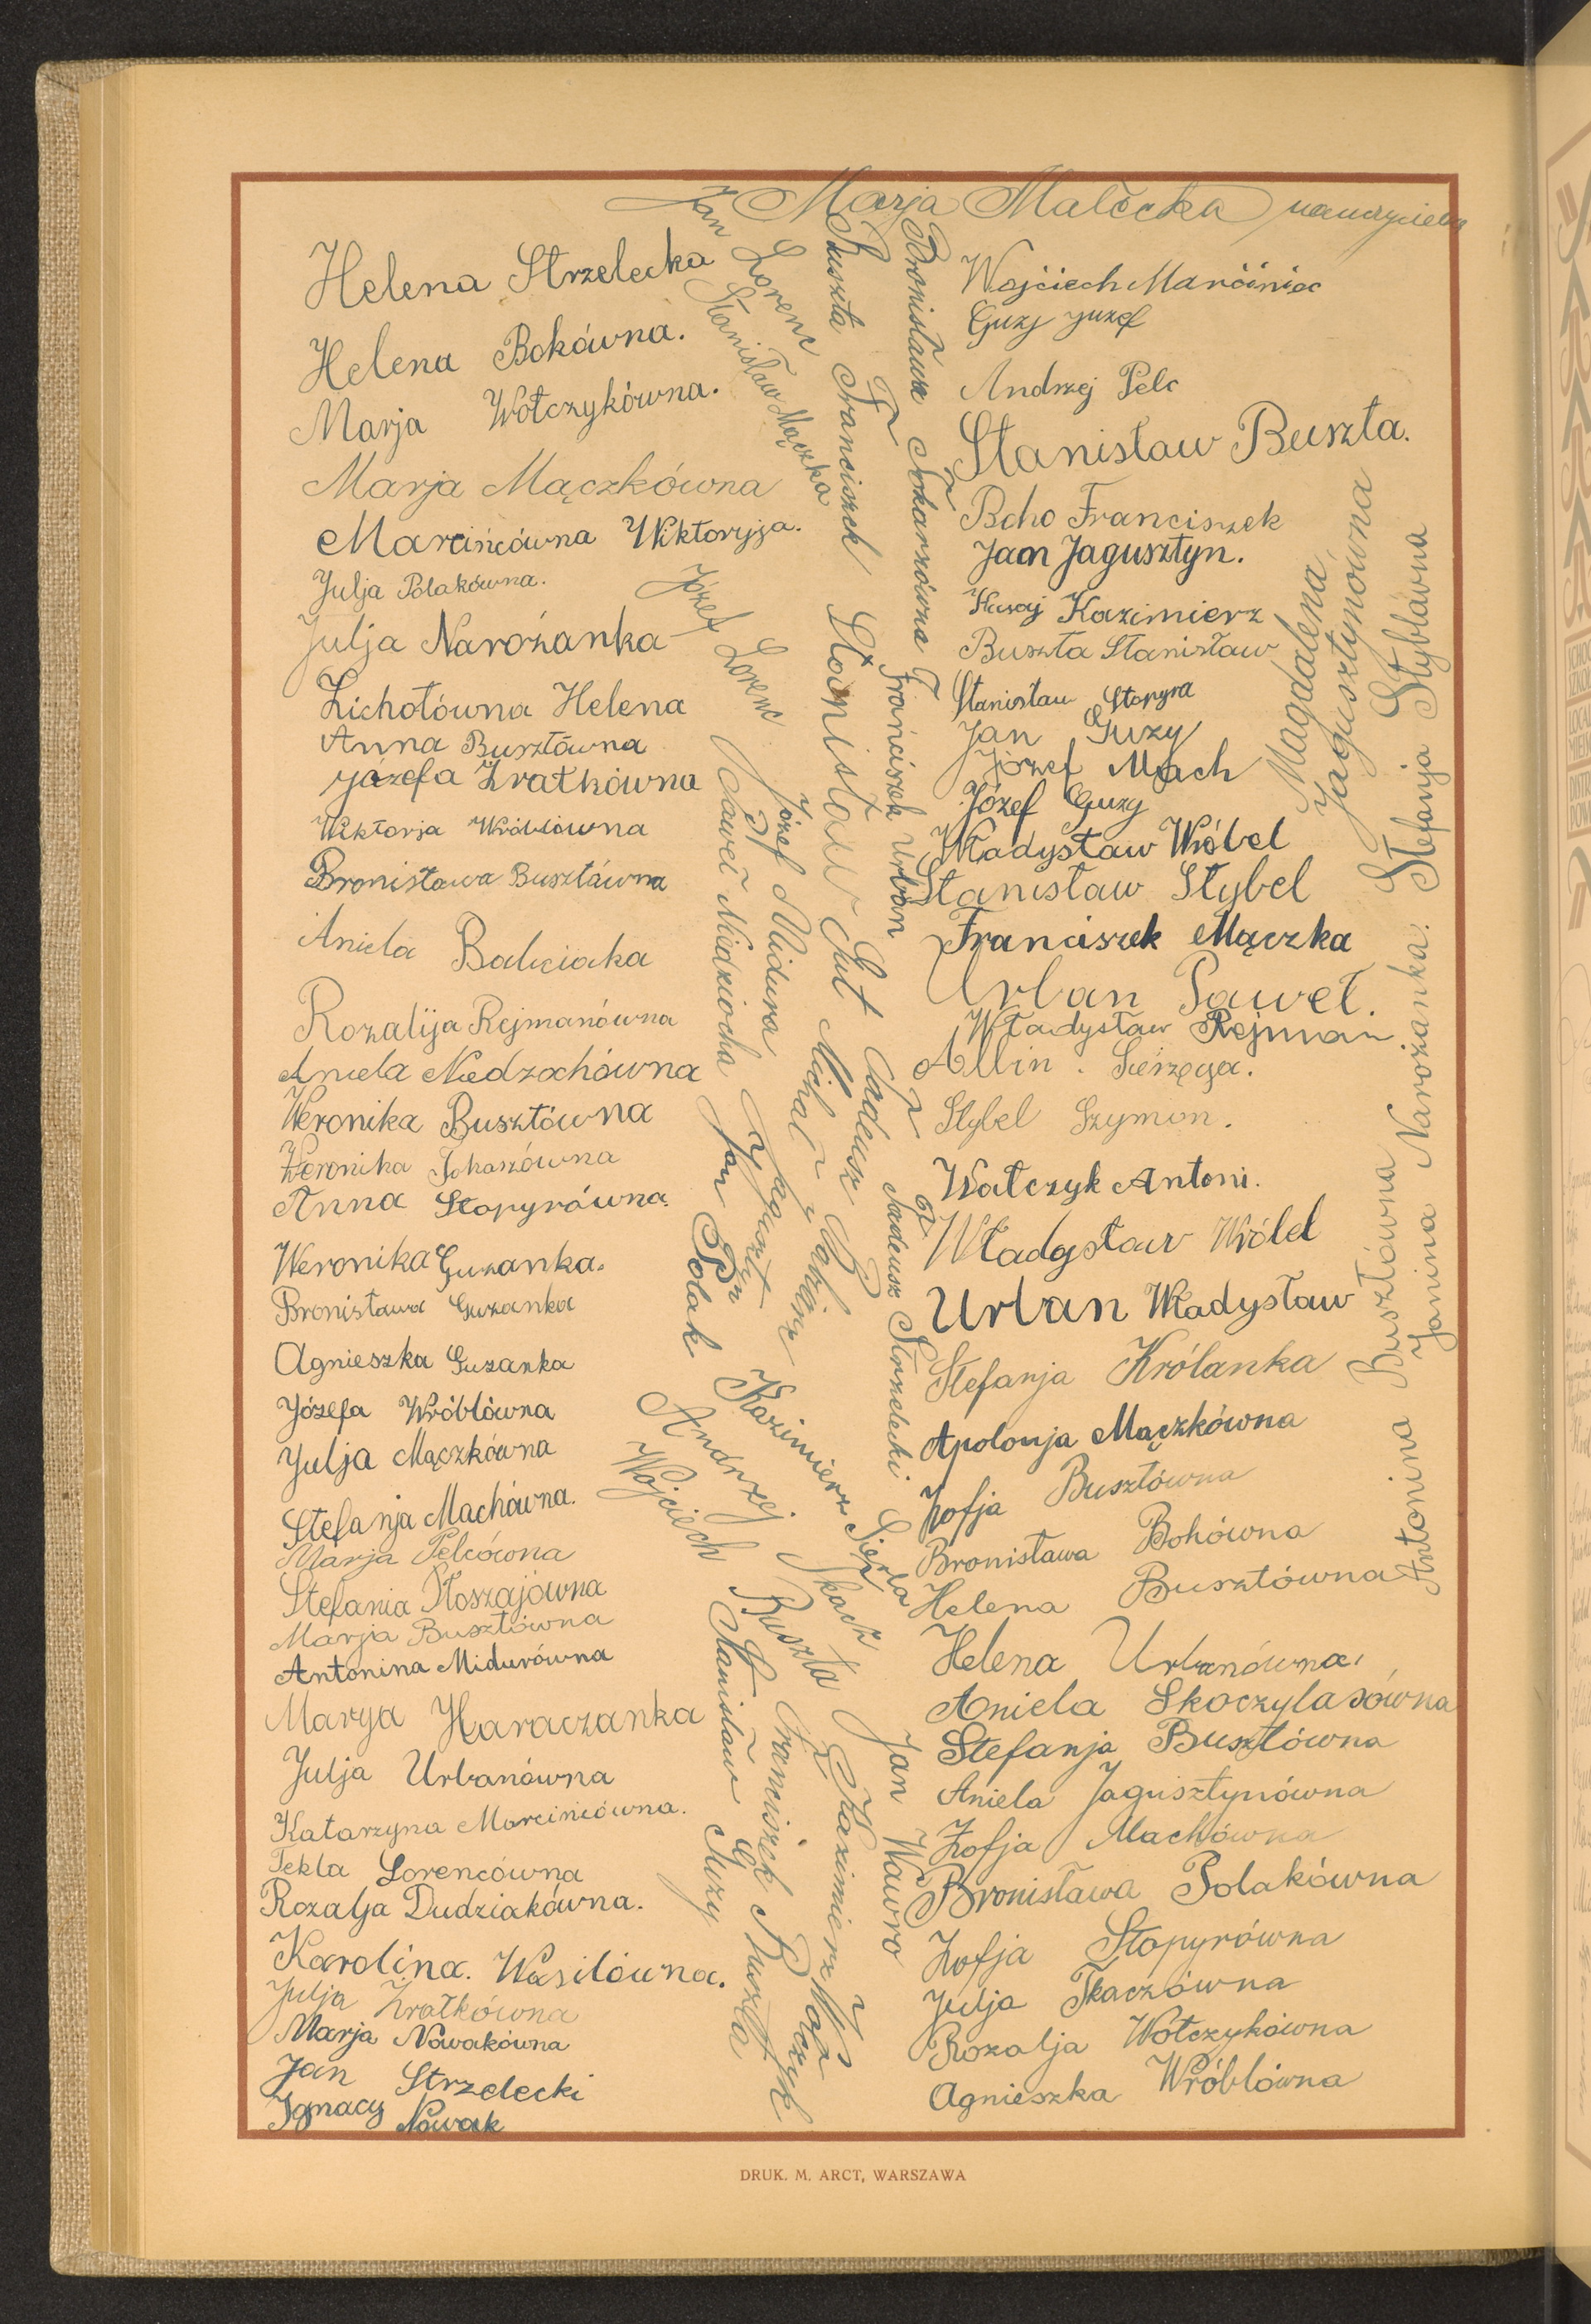 Marja Małecka
Helena Strzelecka
Helena Bokówna.
Marja Wołczykówna.
Marja Mączkówna
Marcińcówna Wiktoryja.
Julja Polakówna.
Julja Narożanka
Lichołówna Helena
Anna Busztówna
Józefa Zratkówna
Wiktorja Wróblówna
Bronisława Busztówna
Aniela
Rozalija Rejmanówna
Aniela Niedzochówna
Weronika Busztówna
Weronika
Anna Stopyrówna.
Weronika Guzanka.
Bronisława Guzanka
Agnieszka Guzanka
Józefa Wróblówna
Julja Mączkówna
Stefanja Machówna.
Marja Pelcówna
Stefania Płoszajówna
Marja Busztówna
Antonina Midurówna
Marya Haraczanka
Julja Urbanówna
Katarzyna Marcińcówna.
Tekla Lorencówna
Rozalja Dudziakówna.
Karolina. Wasilówna.
Julja Zratkówna
Marja Nowakówna
Jan Strzelecki
Ignacy Nowak
Jan Lorenc
Stanisław Mączka
Józef Lorenc
Paweł Niedziocha
Jan Polak
Józef Midura
Jagusztyn
Buszta Franciszek
Stanisław Gut
Michał
Bronisława Tokarzówna
Franciszek Urban
Gut Tadeusz
Tadeusz Strzelecki
Kazimierz Sierla
Andrzej Tkacz
Wojciech Buszta
Stanisław Guzy
Franciszek Buszta
Kazimierz Wołczyk
Jan Wawro
Wojciech Marciniec
Guzy Juzef
Andrzej Pelc
Stanisław Buszta.
Boho Franciszek
Jan Jagusztyn.
Kazimierz
Buszta Stanisław
Stanisław Stopyra
Jan Guzy
Józef Mach
Józef Guzy
Władysław Wróbel
Stanisław Stybel
Franciszek Mączka
Urban Paweł.
Władysław Rejman
Albin. Sierzęga.
Stybel Szymon.
Wałczyk Antoni.
Władysław Wróbel
Urban Władysław
Stefanja Królanka
Apolonja Mączkówna
Zofja Busztówna
Bronisława Bohówna
Helena Busztówna
Helena Urbanówna,
Aniela Skoczylasówna
Stefanja Busztówna
Aniela Jagusztynówna
Zofja Machówna
Bronisława Polakówna
Zofja Stopyrówna
Julja Tkaczówna
Rozalja Wołczykówna
Agnieszka Wróblówna
Magdalena
Jagusztynówna
Stefanja Styblówna
Antonina Busztówna
Janina Narożanka.
DRUK. M. ARCT, WARSZAWA